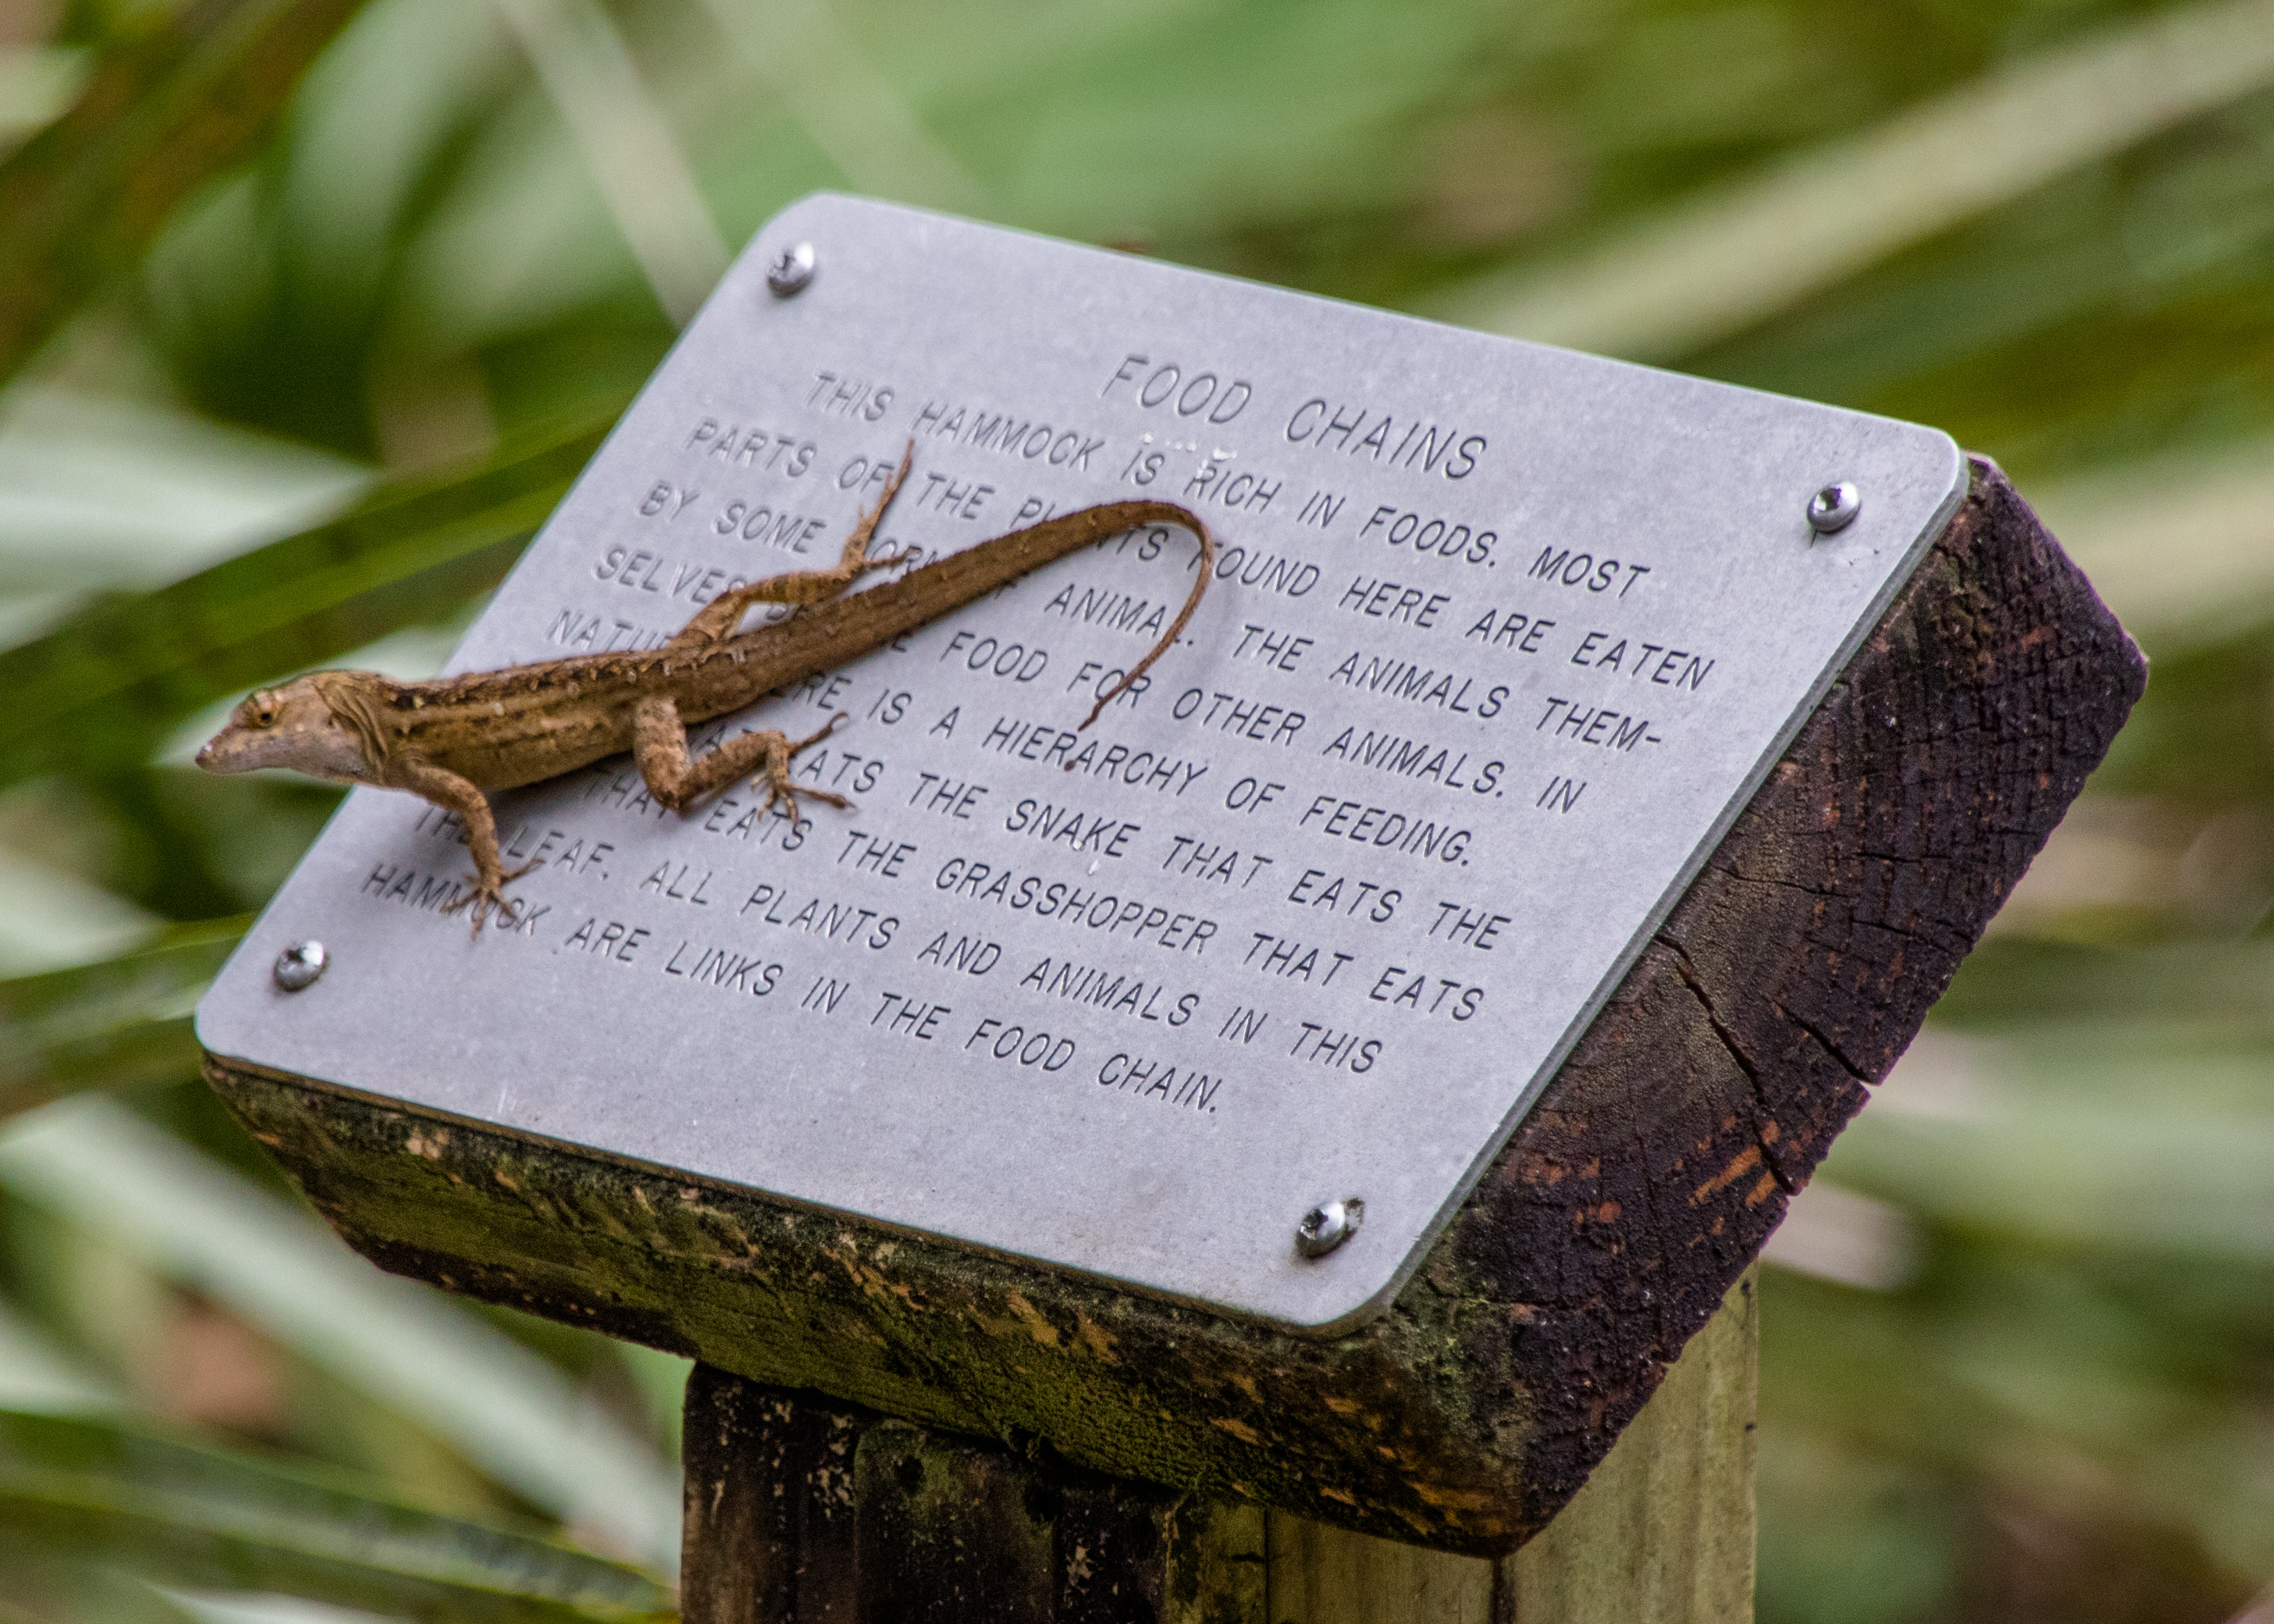 FOOD CHAINS
THIS HAMMOCK IS RICH IN FOODS. MOST
PARTS OF THE PLANTS FOUND HERE ARE EATEN
BY SOME FORM OF ANIMAL. THE ANIMALS THEM-
SELVES FOOD FOR OTHER ANIMALS. IN
NATURE THERE IS A HIERARCHY OF FEEDING.
THAT EATS THE SNAKE THAT EATS THE
THAT EATS THE GRASSHOPPER THAT EATS
THE LEAF. ALL PLANTS AND ANIMALS IN THIS
HAMMOCK ARE LINKS IN THE FOOD CHAIN.